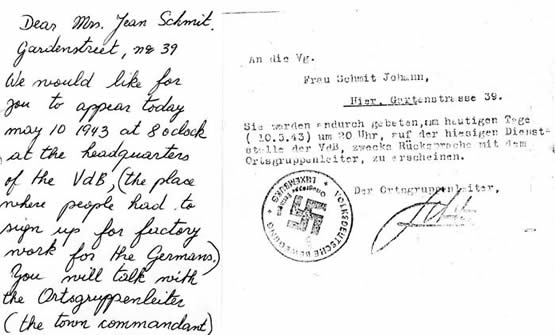 Dear Mrs. Jean Schmit.
Gardenstreet, no 39
We would like for
you to appear today
may 10 1943 at 8 oclock
at the headquarters
of the VdB, (the place
where people had to
sign up for factory
work for the Germans.)
You will talk with
the Ortsgruppenleiter
(the town commandant)
An die Vg.
Frau Schmit Johann,
Hier, Gartenstrasse 39.
Sie werden andurch gebeten,um heutigen Tage
( 10.5.43) um 20 Uhr, auf der hiesigen Dienst-
stelle der VdB, zwecks Rücksprache mit dem
Ortsgruppenleiter, zu erscheinen.
Der Ortsgruppenleiter,
VOLKSDEUTSCHE BEWEGUNG * LUXEMBURG *
Ortsgruppe